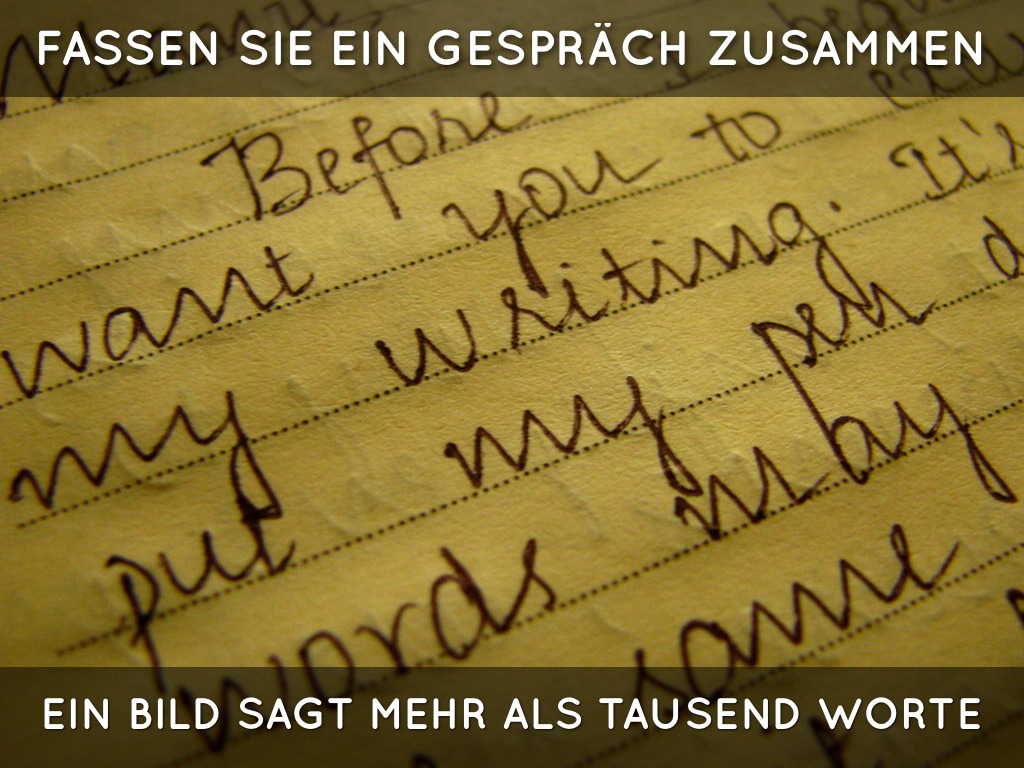 FASSEN SIE EIN GESPRÄCH ZUSAMMEN
Before
want you to
my writing. It's
put my pen
words may
some
EIN BILD SAGT MEHR ALS TAUSEND WORTE